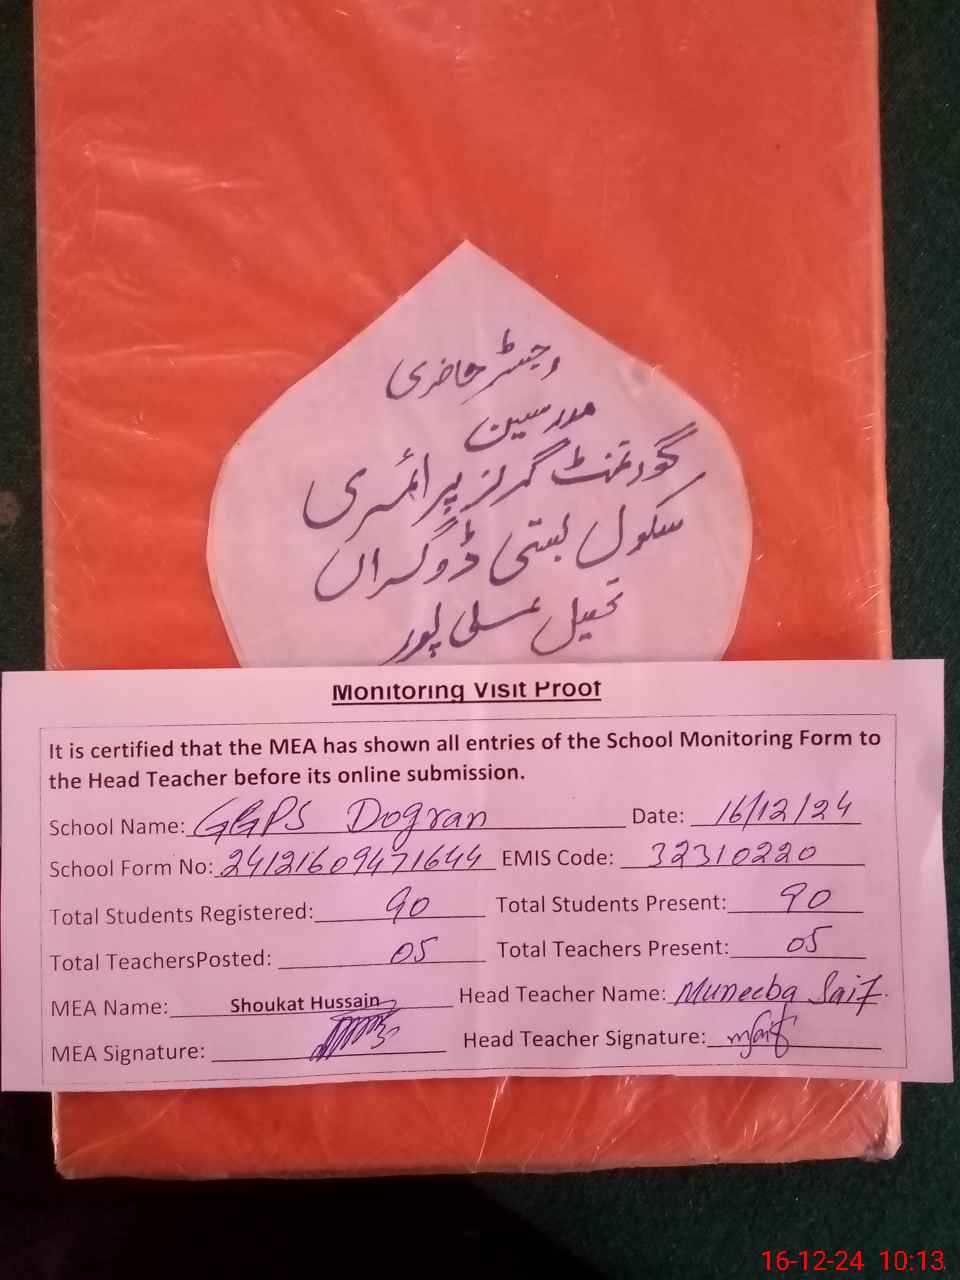 رجسٹر حاضری
مدرسین
گورنمنٹ گرلز پرائمری
سکول بستی ڈوگراں
تحصیل علی پور
Monitoring Visit Proof
It is certified that the MEA has shown all entries of the School Monitoring Form to
the Head Teacher before its online submission.
School Name: GGPS Dogran Date: 16/12/24
School Form No: 24121609471644 EMIS Code: 32310220
Total Students Registered: 90 Total Students Present: 90
Total TeachersPosted: 05 Total Teachers Present: 05
MEA Name: Shoukat Hussain Head Teacher Name: Muneeba Saif.
MEA Signature: Head Teacher Signature: mSaif
16-12-24 10:13